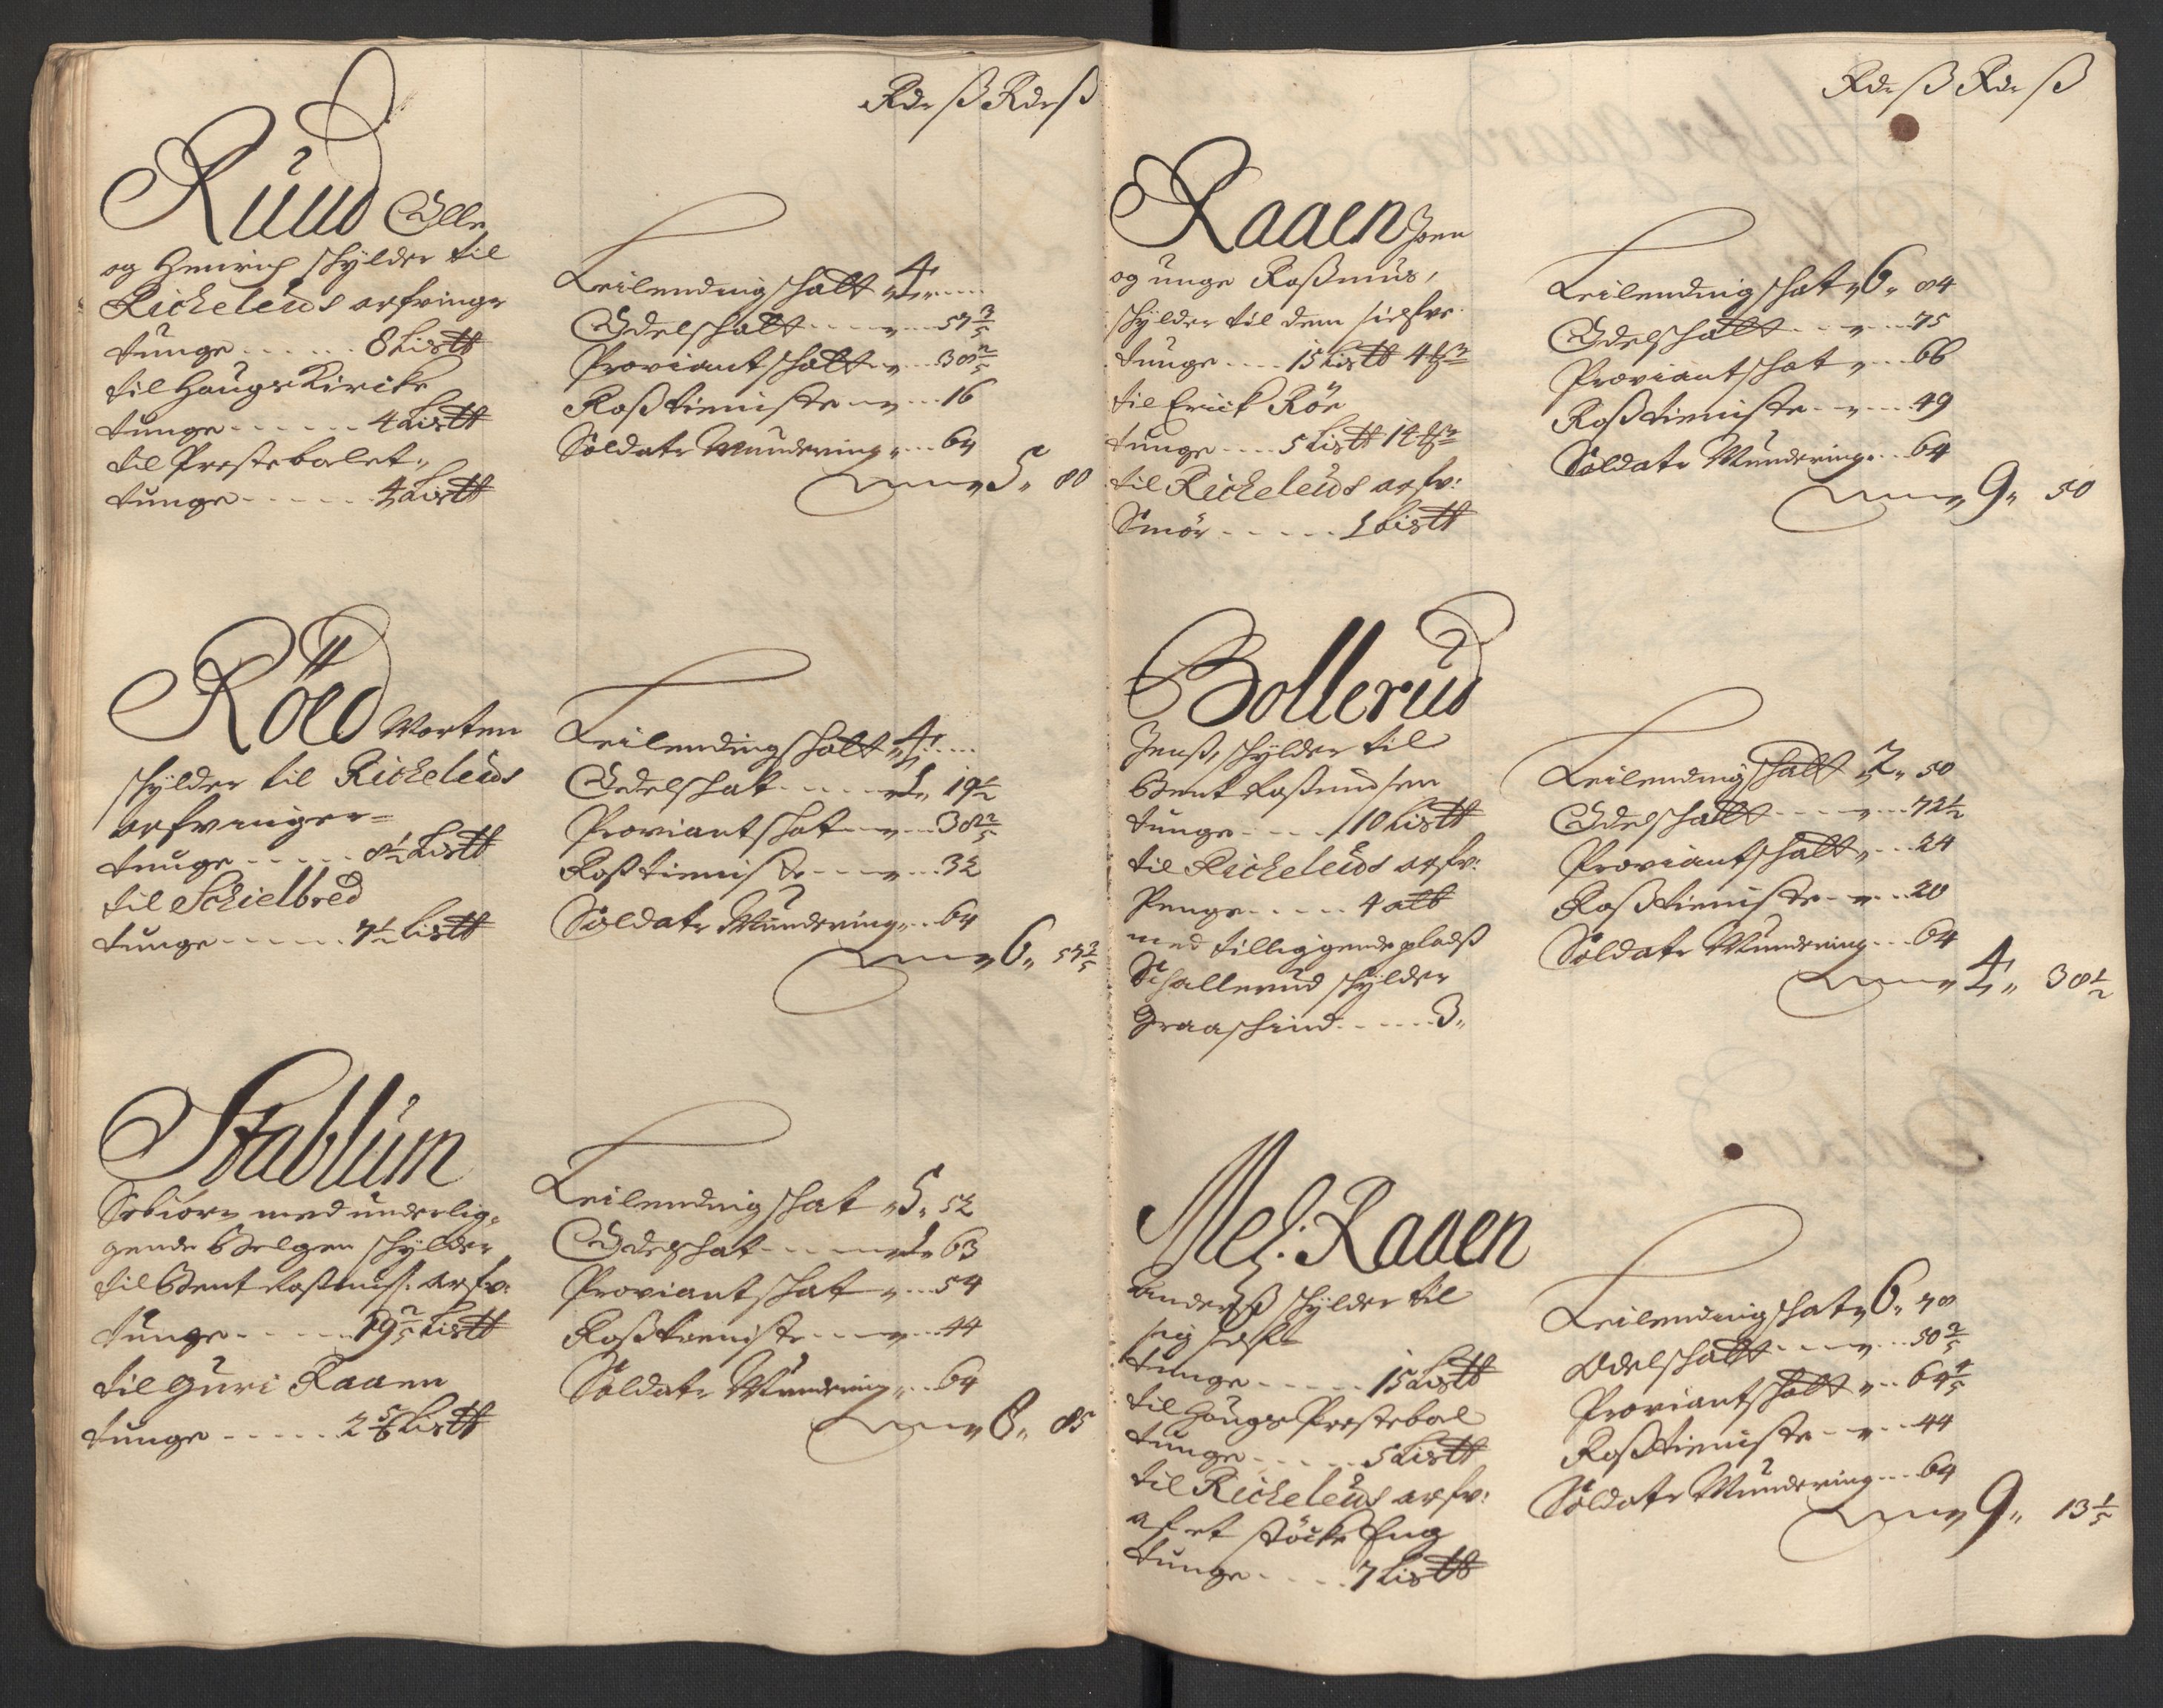 Rdr ß Rdr ß
Ruud Olle
og Henrich schylder til
Richeleus arfvinger
tunge 8 Lis℔
til Haugs Kircke
tunge 4 Lis℔
til Prestebolet
tunge 4 Lis℔
Leilending schatt 4
Odelschatt 57 3/5
Proviant schatt 38 2/5
Roßtieniste 16
Soldate Mundering 64
5 80
Röed Morten
schylder til Richeleus
arfvinger
tunge 8½ Lis℔
til Schielbred
tunge 7½ Lis℔
Leilending schatt 4
Odelschat 1 19½
Proviantschat 38 2/5
Roßtieniste 32
Soldate Mundering 64
6 57 3/5
Stablum
Torbiörn med underlig-
gende Belgen schylder
til Bent Raßmuß: arfv:
tunge 19 2/5 Lis℔
til Guri Raaen
tunge 2 5/6 Lis℔
Leilending schat 5 52
Odelschat 1 63
Proviantschat 54
Roßtieniste 44
Soldate Mundering 64
8 85
Rdr ß Rdr ß
Raaen Joen
og unge Raßmus,
schylder til dem sielfve
tunge 15 Lis℔
til Erick Röe
tunge 5 Lis℔
til Richeleus arfv:
Smör 1 Lis℔
Leilending schat 6 84
Odelschatt 75
Proviantschat 66
Roßtieniste 49
Soldate Mundering 64
9 50
Bollerud
Jenß, schylder til
Bent Raßmudsen
tunge 10 Lis℔
til Richeleus arfv:
Penge 4
med tilliggende pladß
Schallerud schylder
Graaschind 3
Leilending schatt 2 50
Odelschatt 72½
Proviantschatt 24
Roßtieniste 20
Soldate Mundering 64
4 38½
Mel: Raaen
Anderß schylder til
sig self
tunge 15 Lis℔
til Haugs Prestebol
tunge 5 Lis℔
til Richeleus arfv:
af et stöcke Eng
tunge 7 Lis℔
Leilending schat 6 78
Odelschatt 50 2/5
Proviantschatt 64 4/5
Roßtieniste 44
Soldate Mundering 64
9 13 1/5